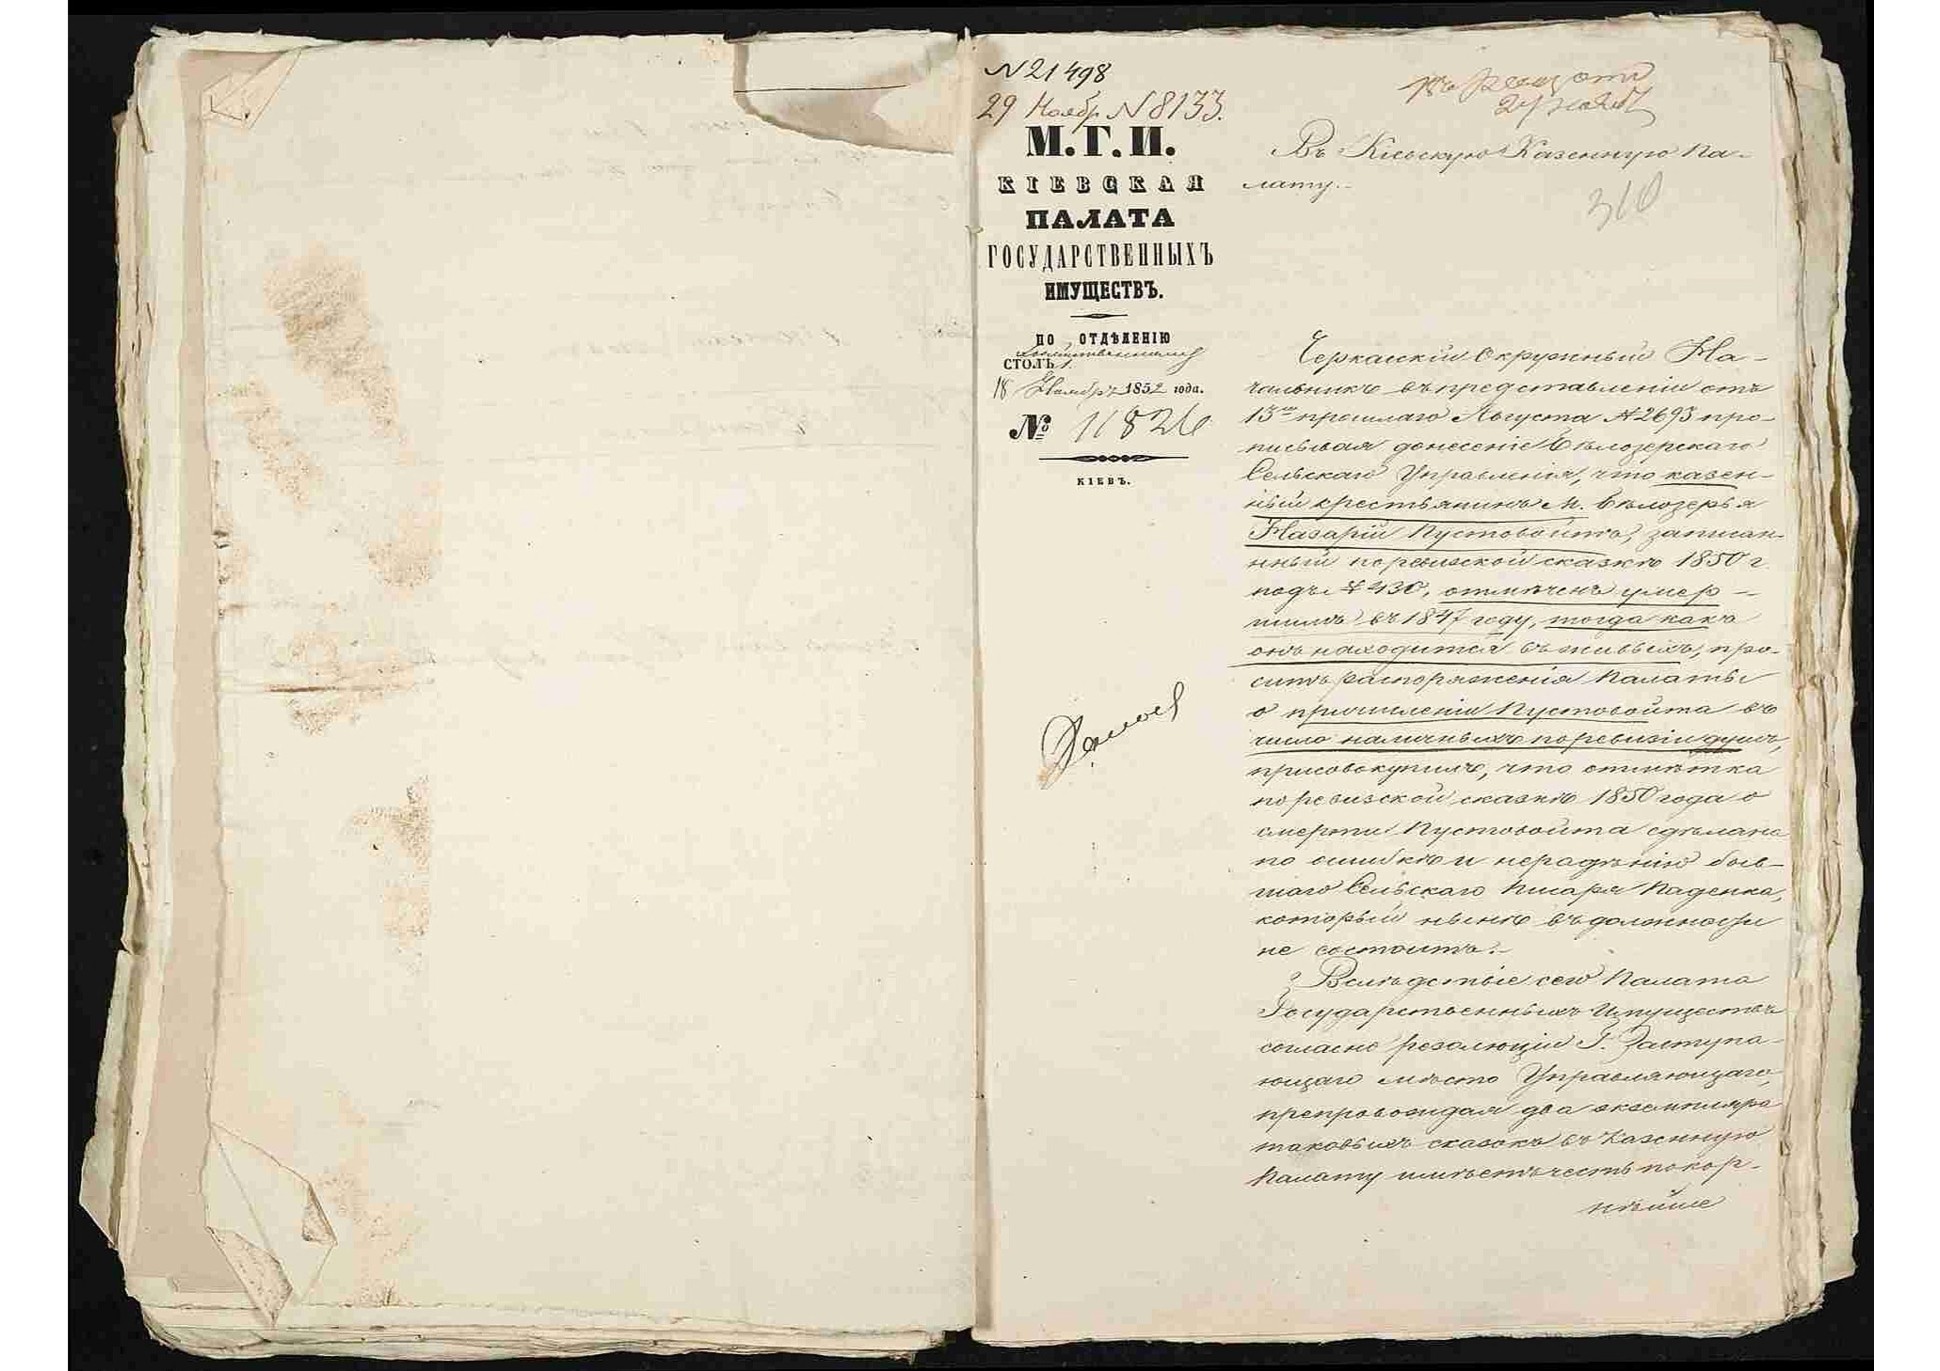 N 21498
29 Ноябр N 8133.
М. Г. И.
КІЕВСКАЯ
ПАЛАТА
ГОСУДАРСТВЕННЫХЪ
ИМУЩЕСТВЪ.
ПО ОТДѢЛЕНІЮ
Хозяйственному
СТОЛЪ 1.
18 Ноябрь 1852 года.
№ 11826
КІЕВЪ.
310
Въ Кіевскую Казенную Па-
лату.
Черкаскій Окружный На-
чальникъ въ представленіи отъ
13го прошлаго Августа № 2693 про-
писывая донесеніе Бѣлозерскаго
Сельскаго Управленія, что казен-
ный крестьянинъ М. Бѣлозерья
Назарій Пустовойтъ, записан-
нный по ревизской сказкѣ 1850 г.
подъ № 430, отмѣченъ умер-
шимъ въ 1847 году, тогда какъ
онъ находится въ живыхъ, про-
ситъ распоряженія Палаты
о причисленіи Пустовойта въ
число наличныхъ по ревизіи душъ,
присовокупилъ, что отмѣтка
по ревизской сказкѣ 1850 года о
смерти Пустовойта сдѣлана
по ошибкѣ и нерадѣнію быв-
шаго Сельскаго Писаря Паденка,
который нынѣ въ должности
не состоитъ.
Вслѣдствіе сего Палата
Государственныхъ Имуществъ
согласно резолюціи Г. Заступа-
ющаго мѣсто Управляющаго,
препровождая два экземпляра
таковыхъ сказокъ въ Казенную
Палату имѣетъ честь покор-
нѣйше